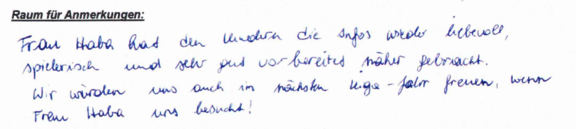 Raum für Anmerkungen:
Frau Haba hat den Kindern die Infos wieder liebevoll,
spielerisch und sehr gut vorbereitet näher gebracht.
Wir würden uns auch im nächsten Kiga-Jahr freuen, wenn
Frau Haba uns besucht!